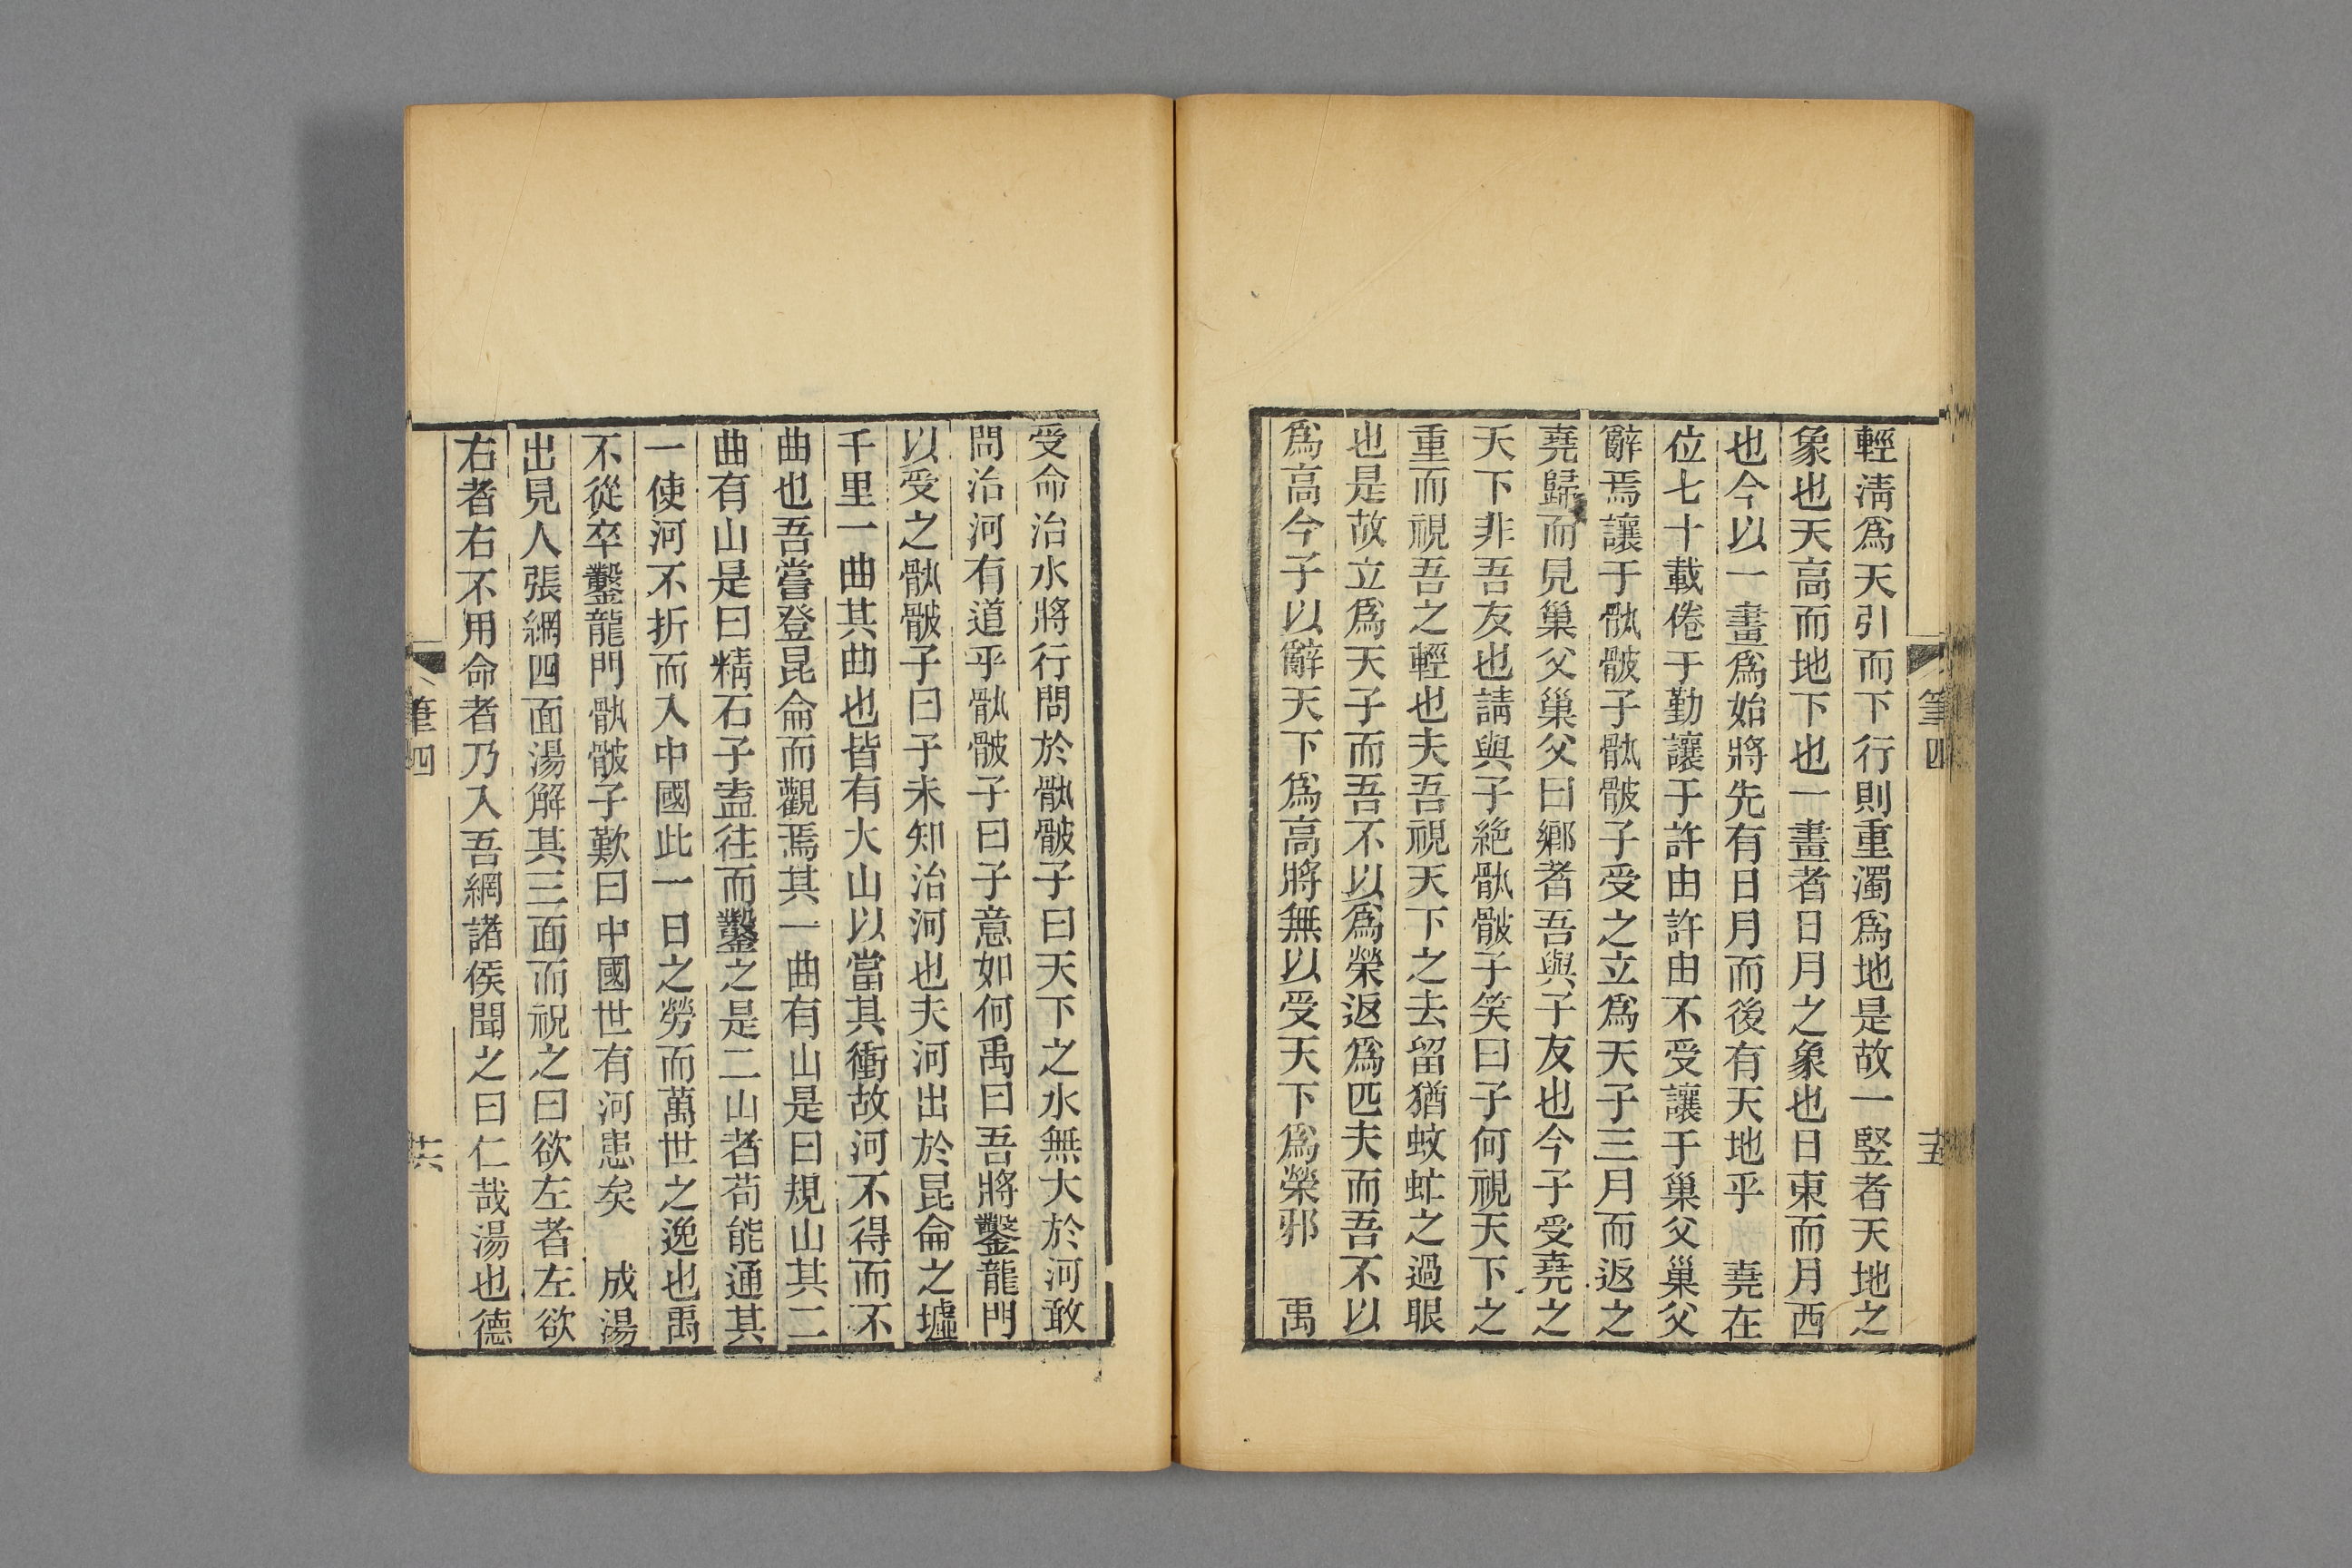 輕淸爲天引而下行則重濁爲地是故一竪者天地之
象也天高而地下也一畫者日月之象也日東而月西
也今以一畫爲始將先有日月而後有天地乎　堯在
位七十載倦于勤讓于許由許由不受讓于巢父巢父
辭焉讓于骩骳子骩骳子受之立爲天子三月而返之
堯歸而見巢父巢父曰鄕者吾與子友也今子受堯之
天下非吾友也請與子絶骩骳子笑曰子何視天下之
重而視吾之輕也夫吾視天下之去留猶蚊虻之過眼
也是故立爲天子而吾不以爲榮返爲匹夫而吾不以
爲高今子以辭天下爲高將無以受天下爲榮邪　禹
筆四
十五
受命治水將行問於骩骳子曰天下之水無大於河敢
問治河有道乎骩骳子曰子意如何禹曰吾將鑿龍門
以受之骩骳子曰子未知治河也夫河出於昆侖之墟
千里一曲其曲也皆有大山以當其衝故河不得而不
曲也吾嘗登昆侖而觀焉其一曲有山是曰規山其二
曲有山是曰精石子盍往而鑿之是二山者苟能通其
一使河不折而入中國此一日之勞而萬世之逸也禹
不從卒鑿龍門骩骳子歎曰中國世有河患矣　成湯
出見人張網四面湯解其三面而祝之曰欲左者左欲
右者右不用命者乃入吾網諸侯聞之曰仁哉湯也德
筆四
十六